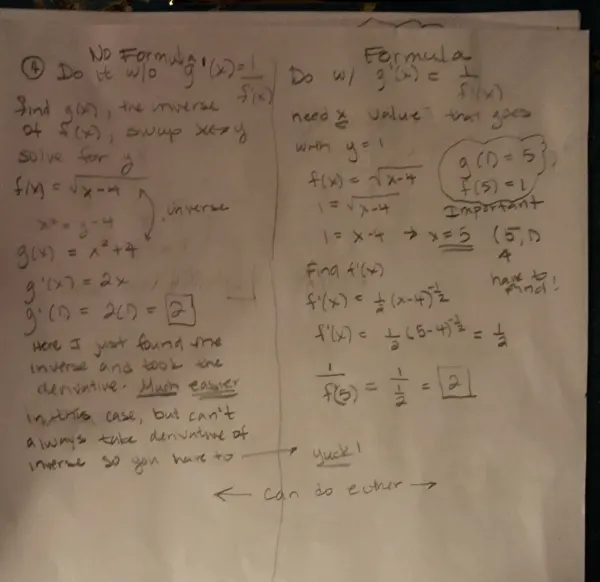 No Formula
④ Do it w/o g'(x) = 1/f'(x)
find g(x), the inverse
of f(x), swap x↔y
solve for y
f(x) = √x-4
x² = y-4
inverse
g(x) = x²+4
g'(x) = 2x
g'(1) = 2(1) = 2
Here I just found the
inverse and took the
derivative. Much easier
in this case, but can't
always take derivative of
inverse so you have to →
Formula
Do w/ g'(x) = 1/f'(x)
need x value that goes
with y = 1
g(1) = 5
f(5) = 1
Important
f(x) = √x-4
1 = √x-4
1 = x-4 → x = 5 (5,1)
have to
find!
Find f'(x)
f'(x) = 1/2 (x-4)^-1/2
f'(x) = 1/2 (5-4)^-1/2 = 1/2
1/f'(5) = 1/(1/2) = 2
yuck!
← can do either →